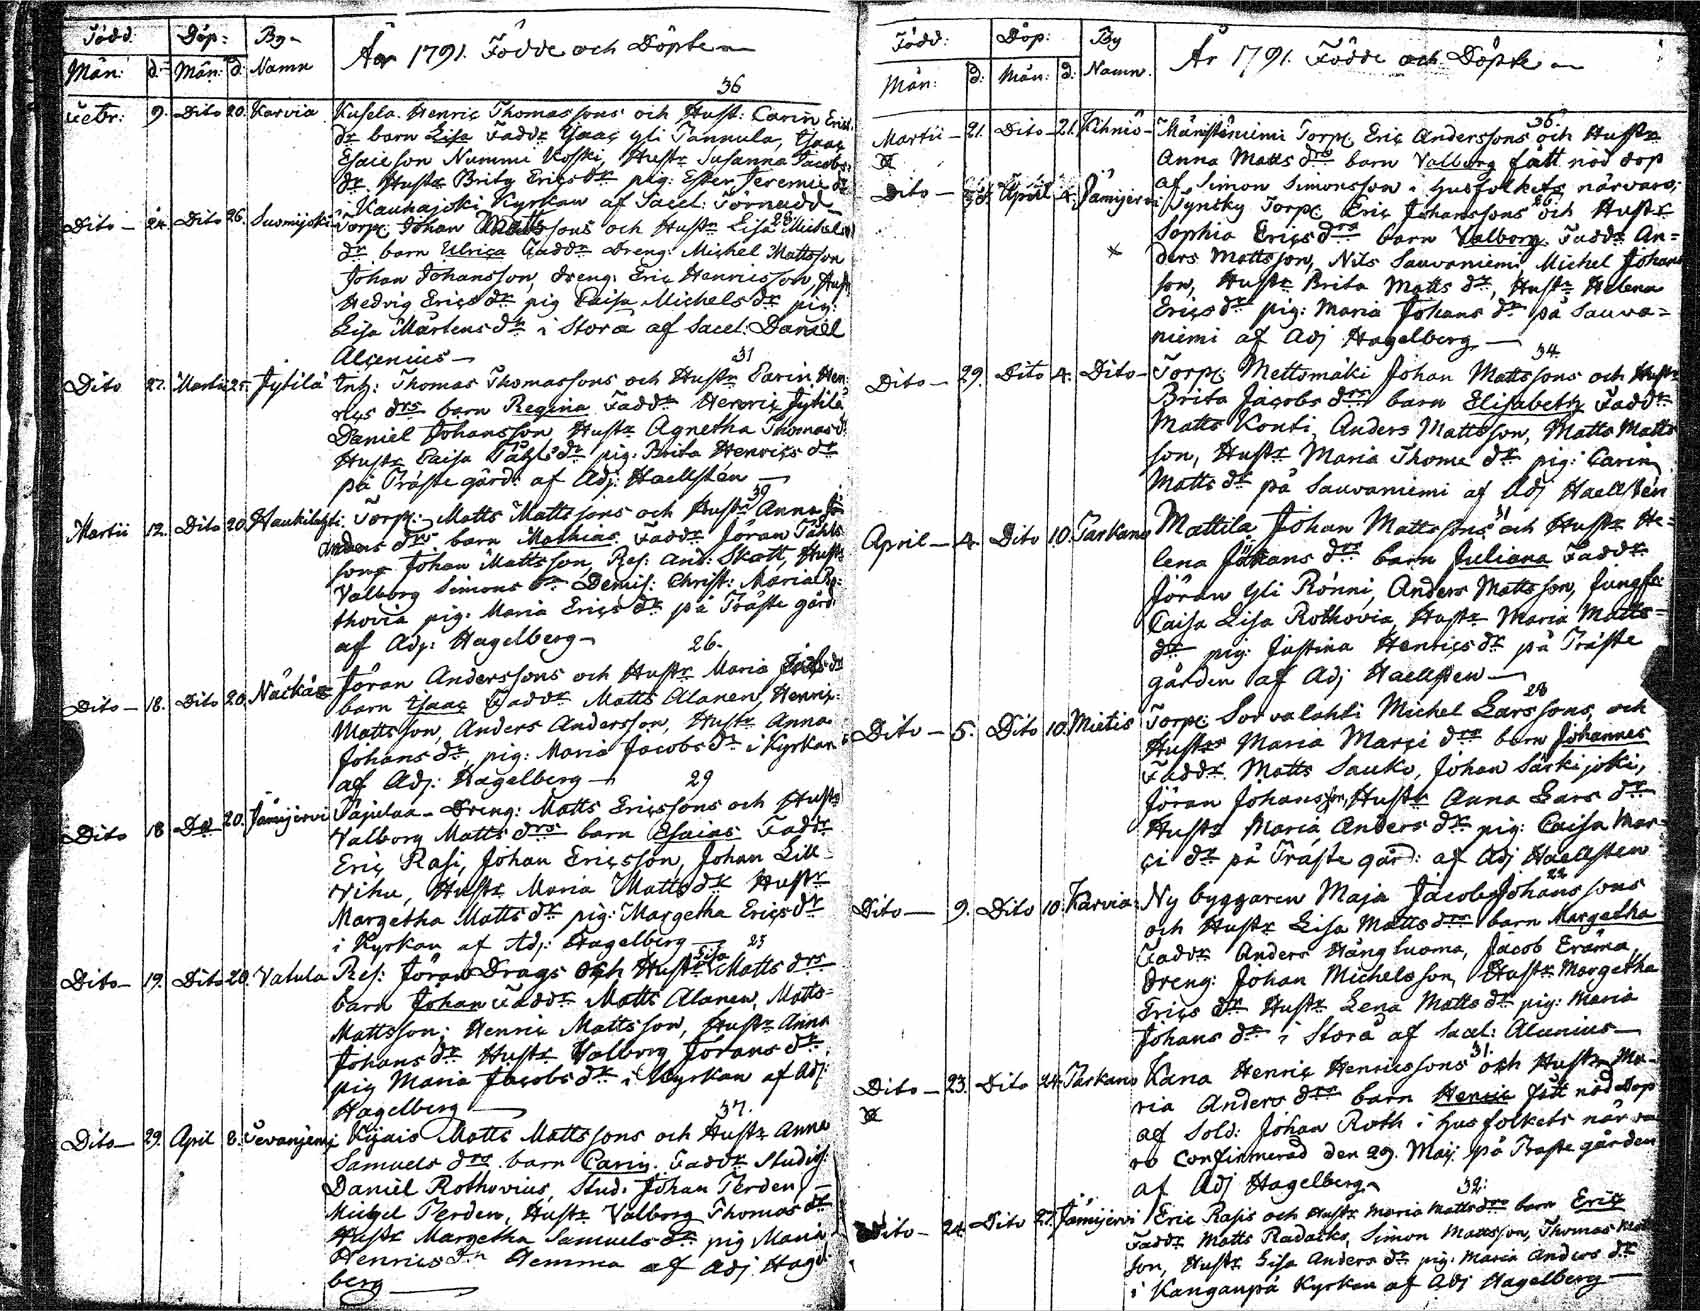 Född. Döp: By-
Mån: d: Mån: d: Namn
År 1791. Födde och Döpte
36
9. Dito 20. Karvia Kusela. Henric Thomassons och Hust: Carin
dr barn Lisa Faddr Isaac Yli Tannula, Isaac
Esaiesson Nummi Koski, Hustr Susanna Jacobs
dr Hustr Brita Erics dr pig: Ester Jeremie dr
i Kauhajoki Kyrkan af Sacel: Törnudd
28
Dito 24. Dito 26. Suomijoki Torp. Johan Matts sons och Hustr Lisa Michels
dr barn Ulrica Faddr Dreng: Michel Mattsson
Johan Johansson, dreng: Eric Henricsson, Hustr
Hedvig Erics dr pig Caisa Michels dr pig:
Lisa Mårtens dr i Storå af Sacel: Daniel
Alcenius
31
Dito 27. Martii 25. Jyllilä Inh: Thomas Thomassons och Hustr Carin Hen-
rics drs barn Regina Faddr Henric Jyllilä
Daniel Johansson Hustr Agnetha Thomas dr
Hustr Caisa Påhls dr pig: Brita Henrics dr
på Präste gård: af Adj: Haellstén
39
Martii 12. Dito 20. Haukilahti Torp: Matts Mattssons och Hustr Anna
Anders drs barn Mathias Faddr Jöran Påhls
sons Johan Mattsson, Ref: And: Skott, Hustr
Valborg Simons dr Demis: Christ: Maria Ro:
thovia pig: Maria Erics dr på Präste gård
af Adj: Hagelberg
26.
Dito 18. Dito 20. Näckäs Jöran Anderssons och Hustr Maria dr
barn Isaac Faddr Matts Alanen, Henric
Mattsson, Anders Andersson, Hustr Anna
Johans dr, pig: Maria Jacobs dr i Kyrkan
af Adj: Hagelberg
29
Dito 18 Do 20. Jämijervi Pajulaa Dreng: Matts Ericssons och Hustr
Valborg Matts drs barn Esaias Faddr
Eric Rasi, Johan Ericsson, Johan Lill-
vihu, Hustr Maria Matts dr Hustr
Margetha Matts dr pig: Margetha Erics dr
i Kyrkan af Adj: Hagelberg
Lisa 23
Dito 19. Dito 20. Vatula Ref: Jöran Drags och Hustr Matts drs
barn Johan Faddr Matts Alanen, Matts-
Mattsson, Henric Mattsson, Hustr Anna
Johans dr Hustr Valborg Jörans dr
pig Maria Jacobs dr i Kyrkan af Adj:
Hagelberg
37.
Dito 29. April 8. Matts Mattssons och Hustr Anna
Samuels drs barn Carin. Faddr Studios:
Daniel Rothovius, Stud: Johan Perden,
Michel Perden, Hustr Valborg Thomas dr
Hustr Margetha Samuels dr pig Maria
Henrics dr Hemma af Adj Hagel
berg
Född: Döp: By
Mån: d: Mån: d: Namn.
År 1791. Födde och Döpte
36.
Martii 21. Dito 21. Kihniö Torp. Eric Anderssons och Hustr
Anna Matts drs barn Valborg fått nöd dop
af Simon Simonsson i husfolkets närvaro;
26.
Dito April 4. Jämijervi Torp. Eric Johanssons och Hustr
Sophia Erics drs barn Valborg Faddr An=
ders Mattsson, Nils Sauvaniemi, Michel Johans
son, Hustr Brita Matts dr, Hustr Helena
Erics dr pig: Maria Johans dr på Sauva=
niemi af Adj Hagelberg
34
Dito 29. Dito 4. Dito Torp. Mettsmäki Johan Mattssons och Hustr
Brita Jacobs drs barn Elisabeth Faddr
Matts Konti, Anders Mattsson, Matts Matts
son, Hustr Maria Thome dr pig: Carin
Matts dr på Sauvaniemi af Adj Haellstén
31
April 4. Dito 10. Parkano Mattila Johan Mattssons och Hustr He-
lena Johans drs barn Juliana Faddr
Jöran Yli Rönni, Anders Mattsson, Jungfr:
Caisa Lisa Rothovia, Hustr Maria Matts-
dr pig: Justina Henrics dr på Präste
gården af Adj Haellsten
28
Dito 5. Dito 10. Mietis Torp. Sorvalahti Michel Larssons, och
Hustrs Maria Marci drs barn Johannes
Faddr Matts Sauko, Johan Särkijoki,
Jöran Johansson, Hustr Anna Lars dr
Hustr Maria Anders dr pig: Caisa Mar-
ci dr på Präste gård: af Adj Haellsten
22
Dito 9. Dito 10. Karvia Ny byggaren Maja Jacob Johans sons
och Hustr Lisa Matts drs barn Margetha
Faddr Anders Hängluoma, Jacob Eräma,
Dreng: Johan Michelsson, Hustr Margetha
Erics dr Hustr Lena Matts dr pig: Maria
Johans dr i Storå af Sacel: Alcenius
31.
Dito 23. Dito 24. Parkano Kana Henric Henricssons och Hustr Ma-
ria Anders drs barn Henric fått nöd dop
af Sold: Johan Roth i husfolkets närva
ro confirmerad den 29. Maij på Präste gården
af Adj Hagelberg
32.
Dito 24. Dito 27. Jämijervi Eric Rasis och Hustr Maria Matts drs barn Eric
Faddr Matts Radatko, Simon Mattsson, Thomas Matts
son, Hustr Lisa Anders dr pig: Maria Anders dr
i Kangaupå Kyrkan af Adj Hagelberg